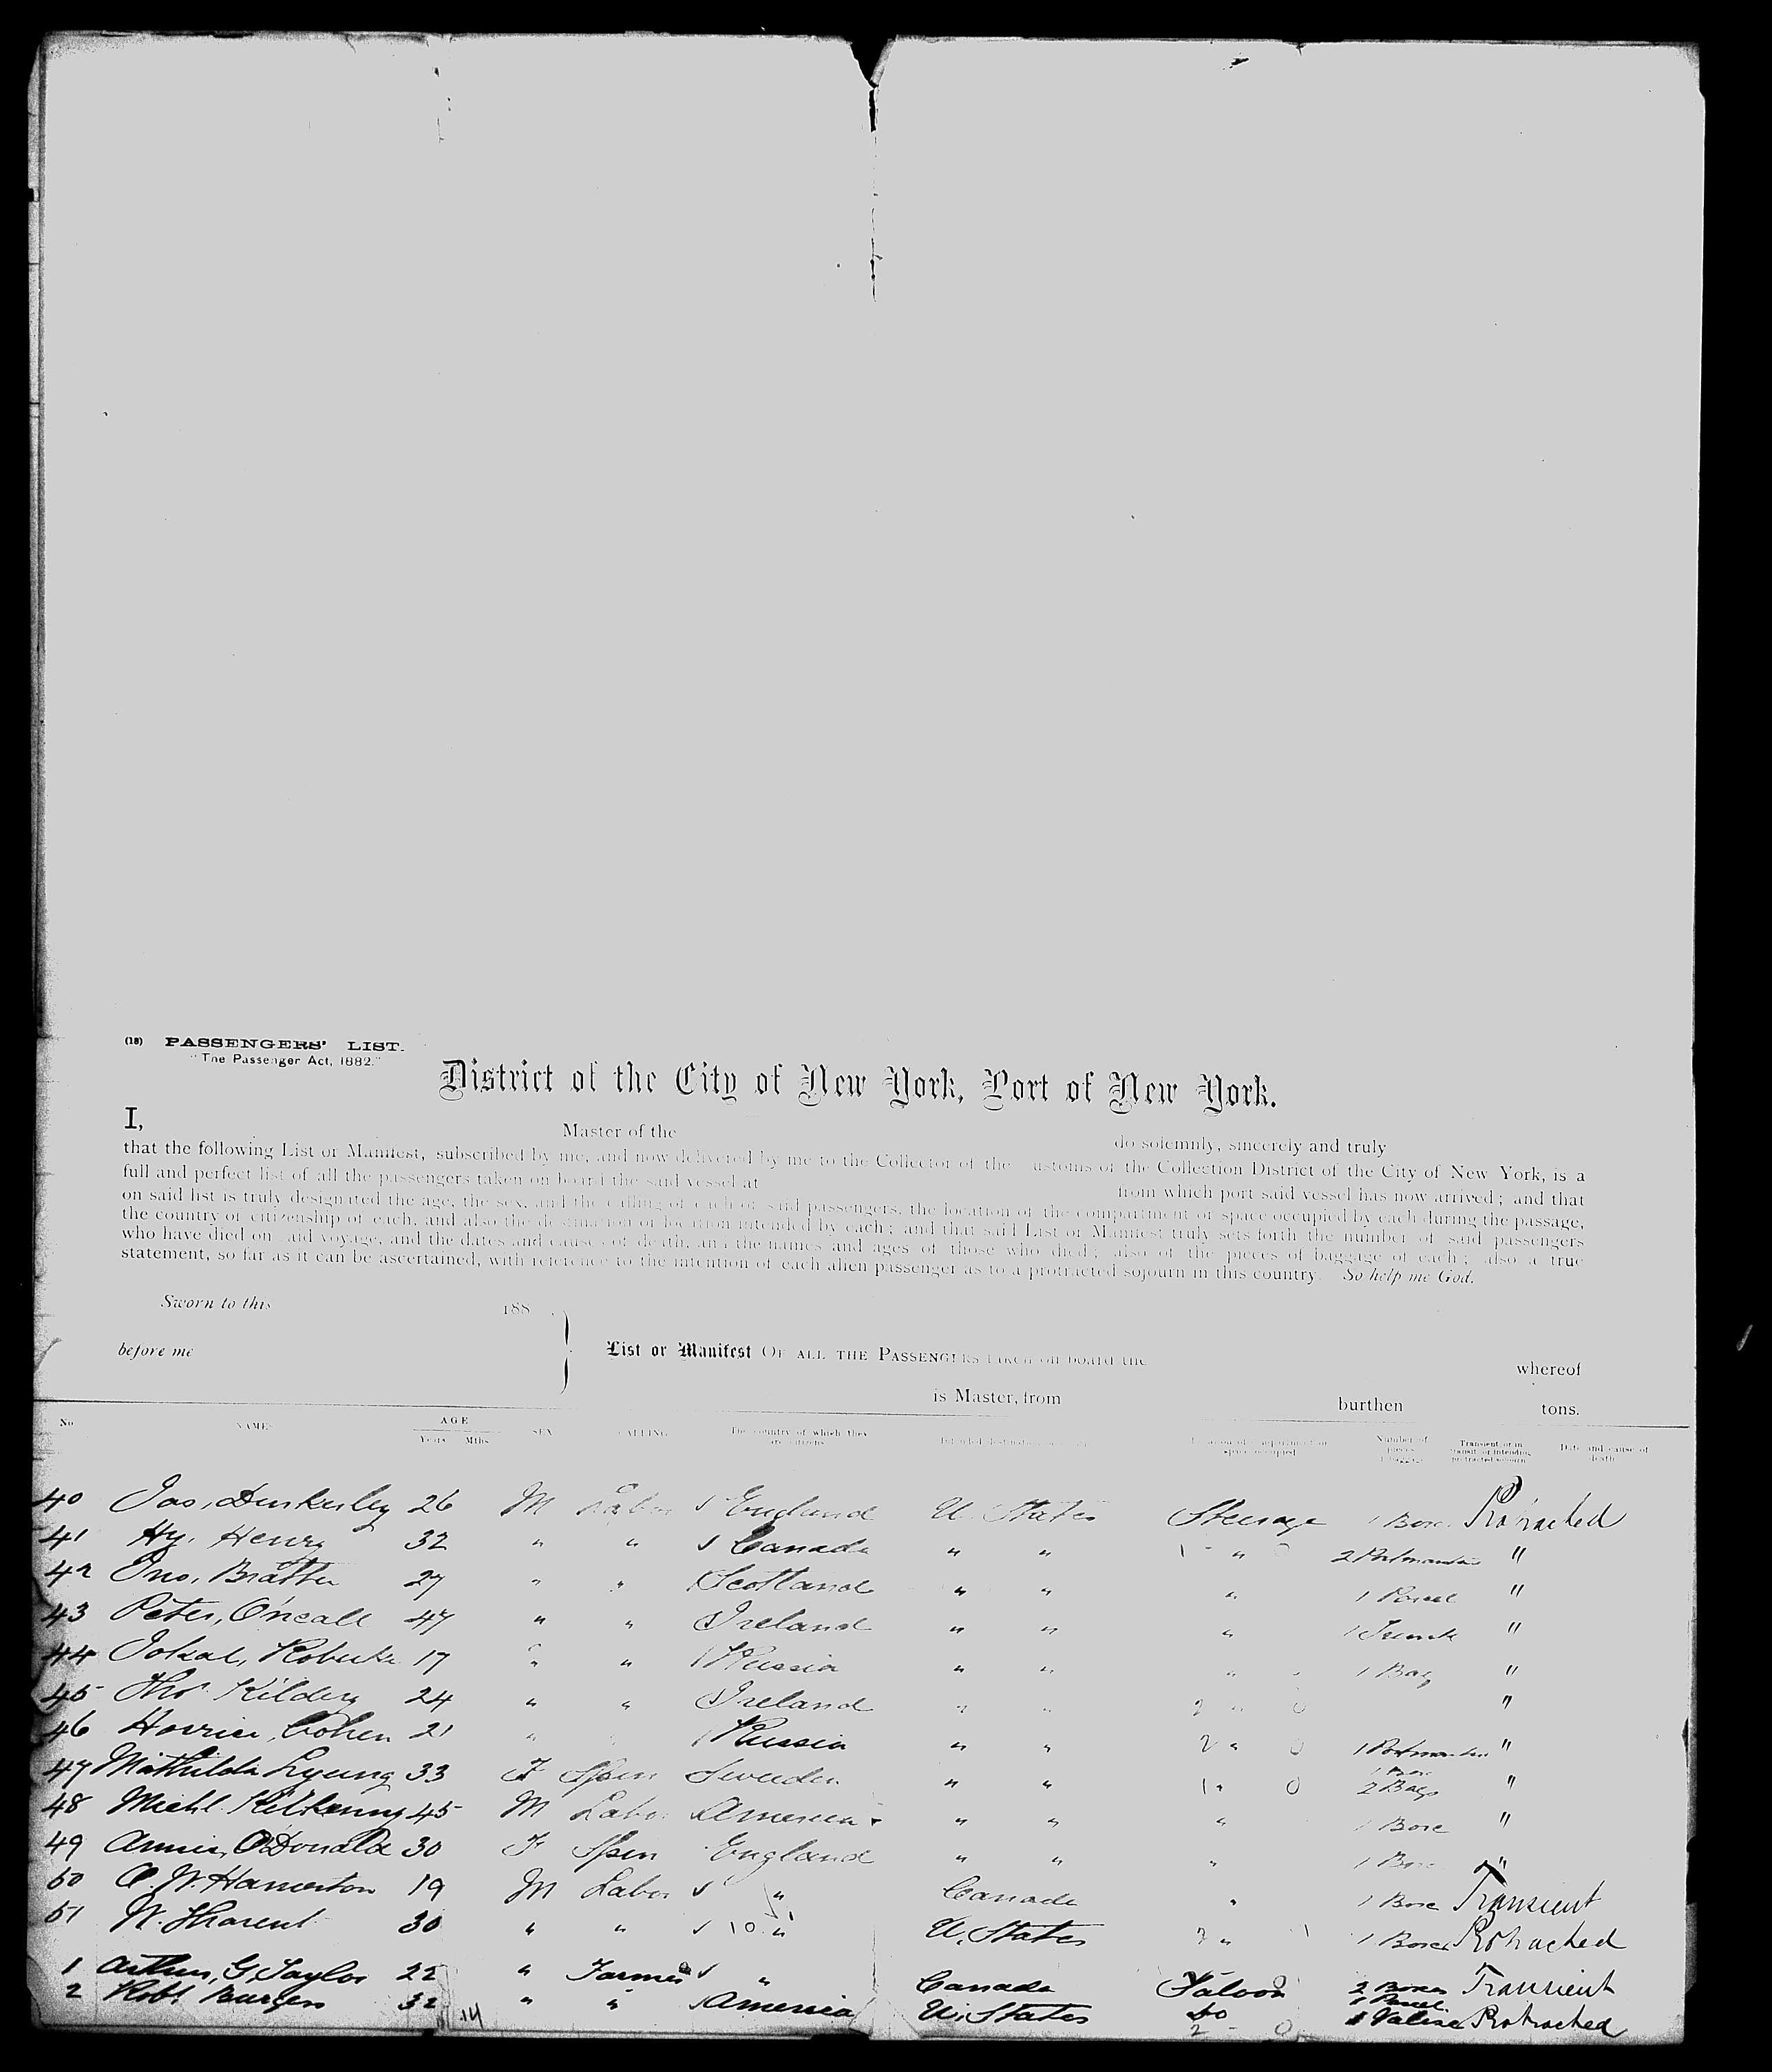 (18) PASSENGERS' LIST.
"The Passenger Act, 1882."
District of the City of New York, Port of New York.
I, Master of the do solemnly, sincerely and truly
that the following List or Manifest, subscribed by me, and now delivered by me to the Collector of the ustoms of the Collection District of the City of New York, is a
full and perfect list of all the passengers taken on board the said vessel at from which port said vessel has now arrived; and that
on said list is truly designated the age, the sex, and the calling of each of said passengers, the location of the compartment or space occupied by each during the passage,
the country of citizenship of each, and also the destination or location intended by each; and that said List or Manifest truly sets forth the number of said passengers
who have died on said voyage, and the dates and causes of death, and the names and ages of those who died; also of the pieces of baggage of each; also a true
statement, so far as it can be ascertained, with reference to the intention of each alien passenger as to a protracted sojourn in this country. So help me God.
Sworn to this 188 .
before me
List or Manifest OF ALL THE PASSENGERS taken on board the whereof
is Master, from burthen tons.
No NAMES AGE Years Mths SEX CALLING The country of which they are citizens Intended destination Number of pieces Transient or in transit, or intending protracted sojourn Date and cause of death
40 Jas, Dunkerley 26 M Labor England U. States Steerage 1 Box Protracted
41 Hy, Henry 32 " " Canada " " " 2 "
42 Jno, 27 " " Scotland " " " 1 Parcel "
43 Peter, O'neall 47 " " Ireland " " " 1 Trunk "
44 17 " " Russia " " " 1 Bag "
45 Thos 24 " " Ireland " " " "
46 Cohen 21 " Russia " " " 1 "
47 Mathilda Lyung 33 F Spin Sweden " " " 1 Box 2 Bags "
48 Michl Kilkenny 45 M Labor America " " " 1 Box "
49 Annie, O'Donald 30 F Spin England " " " 1 Box "
50 Hamerton 19 M Labor " Canada " 1 Box Transient
51 W. 30 " " 10 " U. States " 1 Box Protracted
1 Arthur, G, Taylor 22 " Farmer " Canada Saloon 2 Boxes 1 Parcel Transient
2 Robt Burgess 32 " " America U. States do 1 Valise Protracted
14